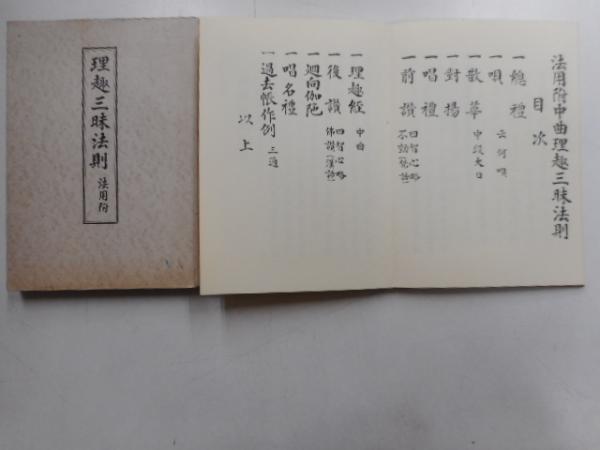 理趣三昧法則 法用附
法用附中曲理趣三昧法則
目次
一總禮
一唄 云何唄
一散華 中段大日
一對揚
一唱禮
一前讃 四智心略 不動(梵語)
一理趣経 中曲
一後讃 四智心略 佛讃(漢語)
一廻向伽陀
一唱名禮
一過去帳作例 三通
以上